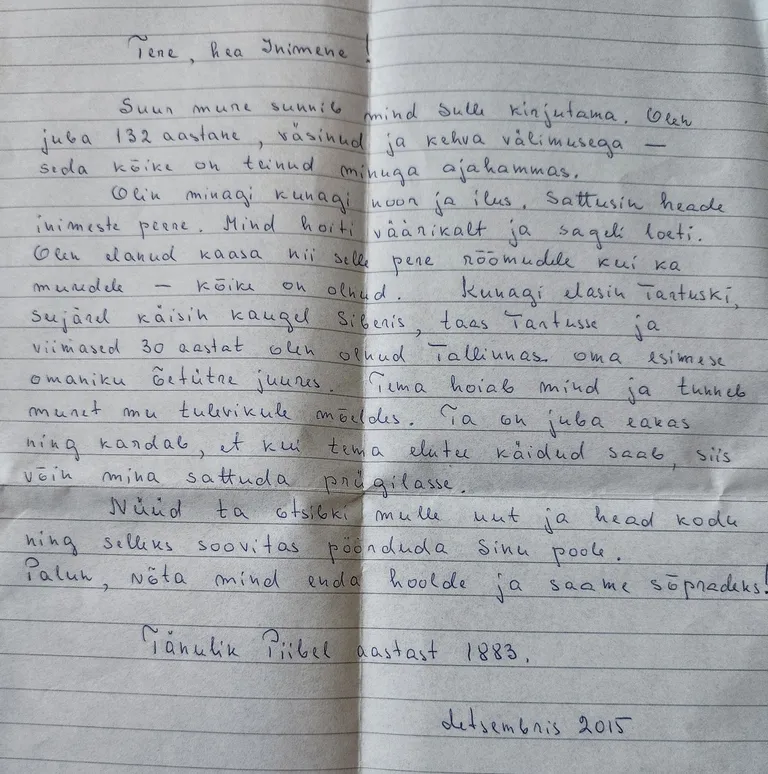 Tere, hea Inimene!
Suur mure sunnib mind Sulle kirjutama. Olen
juba 132 aastane, väsinud ja kehva välimusega —
seda kõike on teinud minuga ajahammas.
Olin minagi kunagi noor ja ilus. Sattusin heade
inimeste perre. Mind hoiti väärikalt ja sageli loeti.
Olen elanud kaasa nii selle pere rõõmudele kui ka
muredele — kõike on olnud. Kunagi elasin Tartuski,
seejärel käisin kaugel Siberis, taas Tartusse ja
viimased 30 aastat olen olnud Tallinnas oma esimese
omaniku õetütre juures. Tema hoiab mind ja tunneb
muret mu tulevikule mõeldes. Ta on juba eakas
ning kardab, et kui tema elutee käidud saab, siis
võin mina sattuda prügilasse.
Nüüd ta otsibki mulle uut ja head kodu
ning selleks soovitas pöörduda Sinu poole.
Palun, võta mind enda hoolde ja saame sõpradeks!
Tänulik Piibel aastast 1883.
detsembris 2015